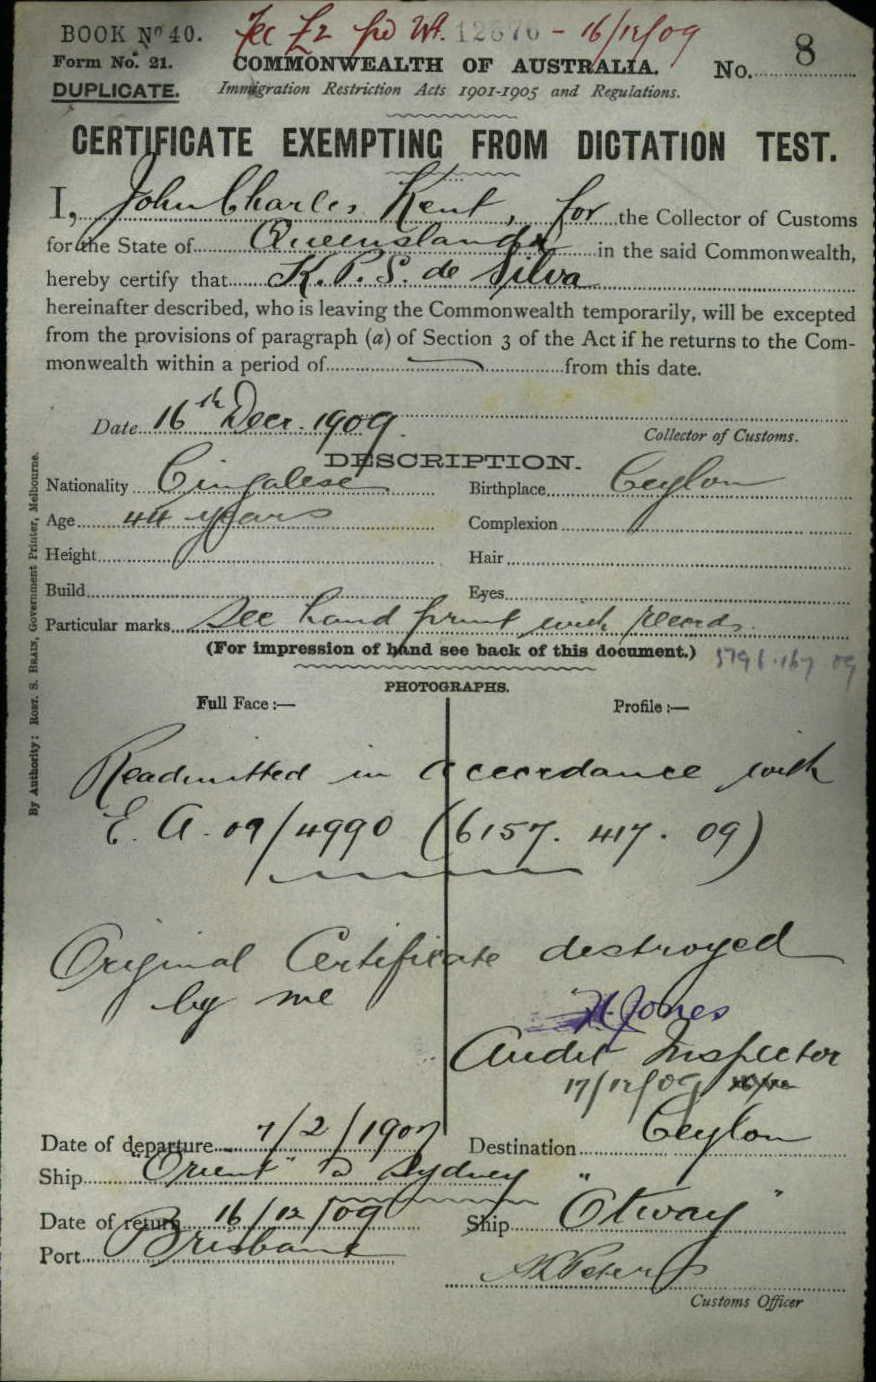 BOOK Nº 40.
Fee £2 pd Wt. 12676 - 16/12/09
Form No. 21.
COMMONWEALTH OF AUSTRALIA.
No. 8
DUPLICATE.
Immigration Restriction Acts 1901-1905 and Regulations.
CERTIFICATE EXEMPTING FROM DICTATION TEST.
I, John Charles Kent, for the Collector of Customs
for the State of Queensland in the said Commonwealth,
hereby certify that K. P. S. de Silva
hereinafter described, who is leaving the Commonwealth temporarily, will be excepted
from the provisions of paragraph (a) of Section 3 of the Act if he returns to the Com-
monwealth within a period of from this date.
Date 16th Decr. 1909.
Collector of Customs.
DESCRIPTION.
Nationality Cingalese Birthplace Ceylon
Age 44 years Complexion
Height Hair
Build Eyes
Particular marks See hand print with records.
(For impression of hand see back of this document.)
5796.167 09
PHOTOGRAPHS.
Full Face :— Profile :—
Readmitted in accordance with
E. A. 09/4990 (6157. 417. 09)
Original Certificate destroyed
by me
H. Jones
Audit Inspector
17/12/09
Date of departure 7/2/1907 Destination Ceylon
Ship "Orient" Sydney
Date of return 16/12/09 Ship "Otway"
Port Brisbane
Peters
Customs Officer
By Authority: ROBT. S. BRAIN, Government Printer, Melbourne.